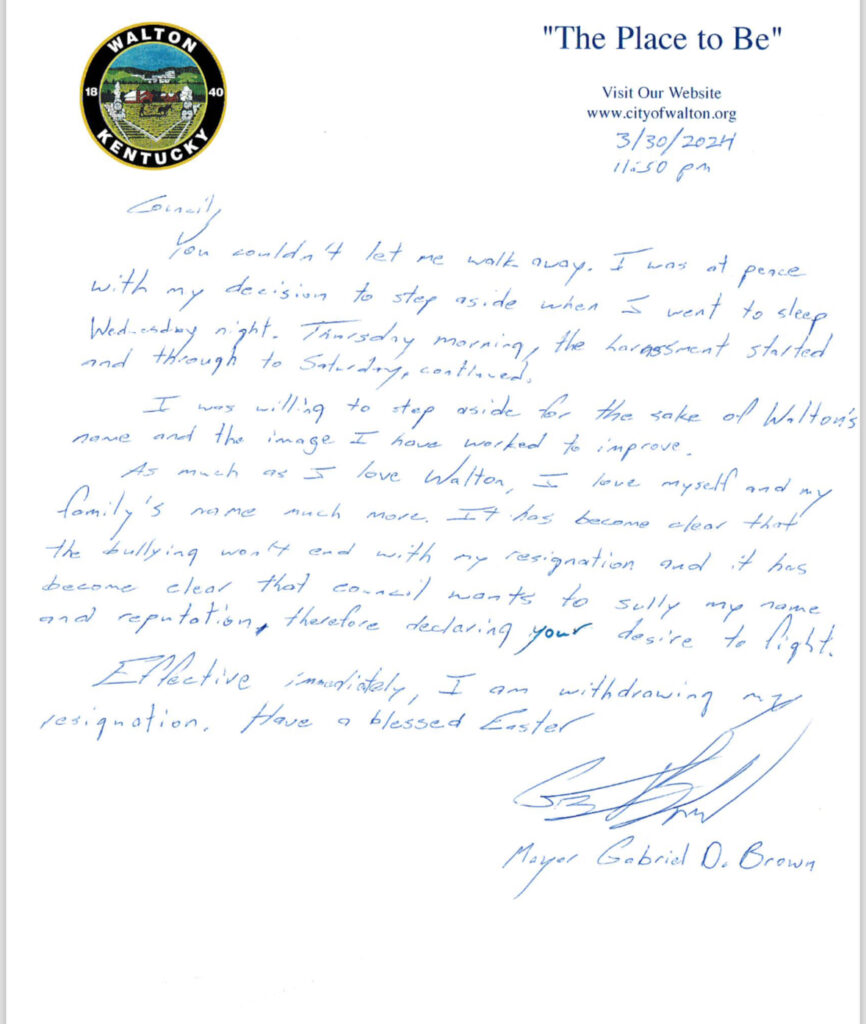 WALTON
18 40
KENTUCKY
"The Place to Be"
Visit Our Website
www.cityofwalton.org
3/30/2024
11:50 pm
Council,
You couldn't let me walk away. I was at peace
with my decision to step aside when I went to sleep
Wednesday night. Thursday morning, the harassment started
and through to Saturday, continued.
I was willing to step aside for the sake of Walton's
name and the image I have worked to improve.
As much as I love Walton, I love myself and my
family's name much more. It has become clear that
the bullying won't end with my resignation and it has
become clear that council wants to sully my name
and reputation, therefore declaring your desire to fight.
Effective immediately, I am withdrawing my
resignation. Have a blessed Easter
Mayor Gabriel D. Brown